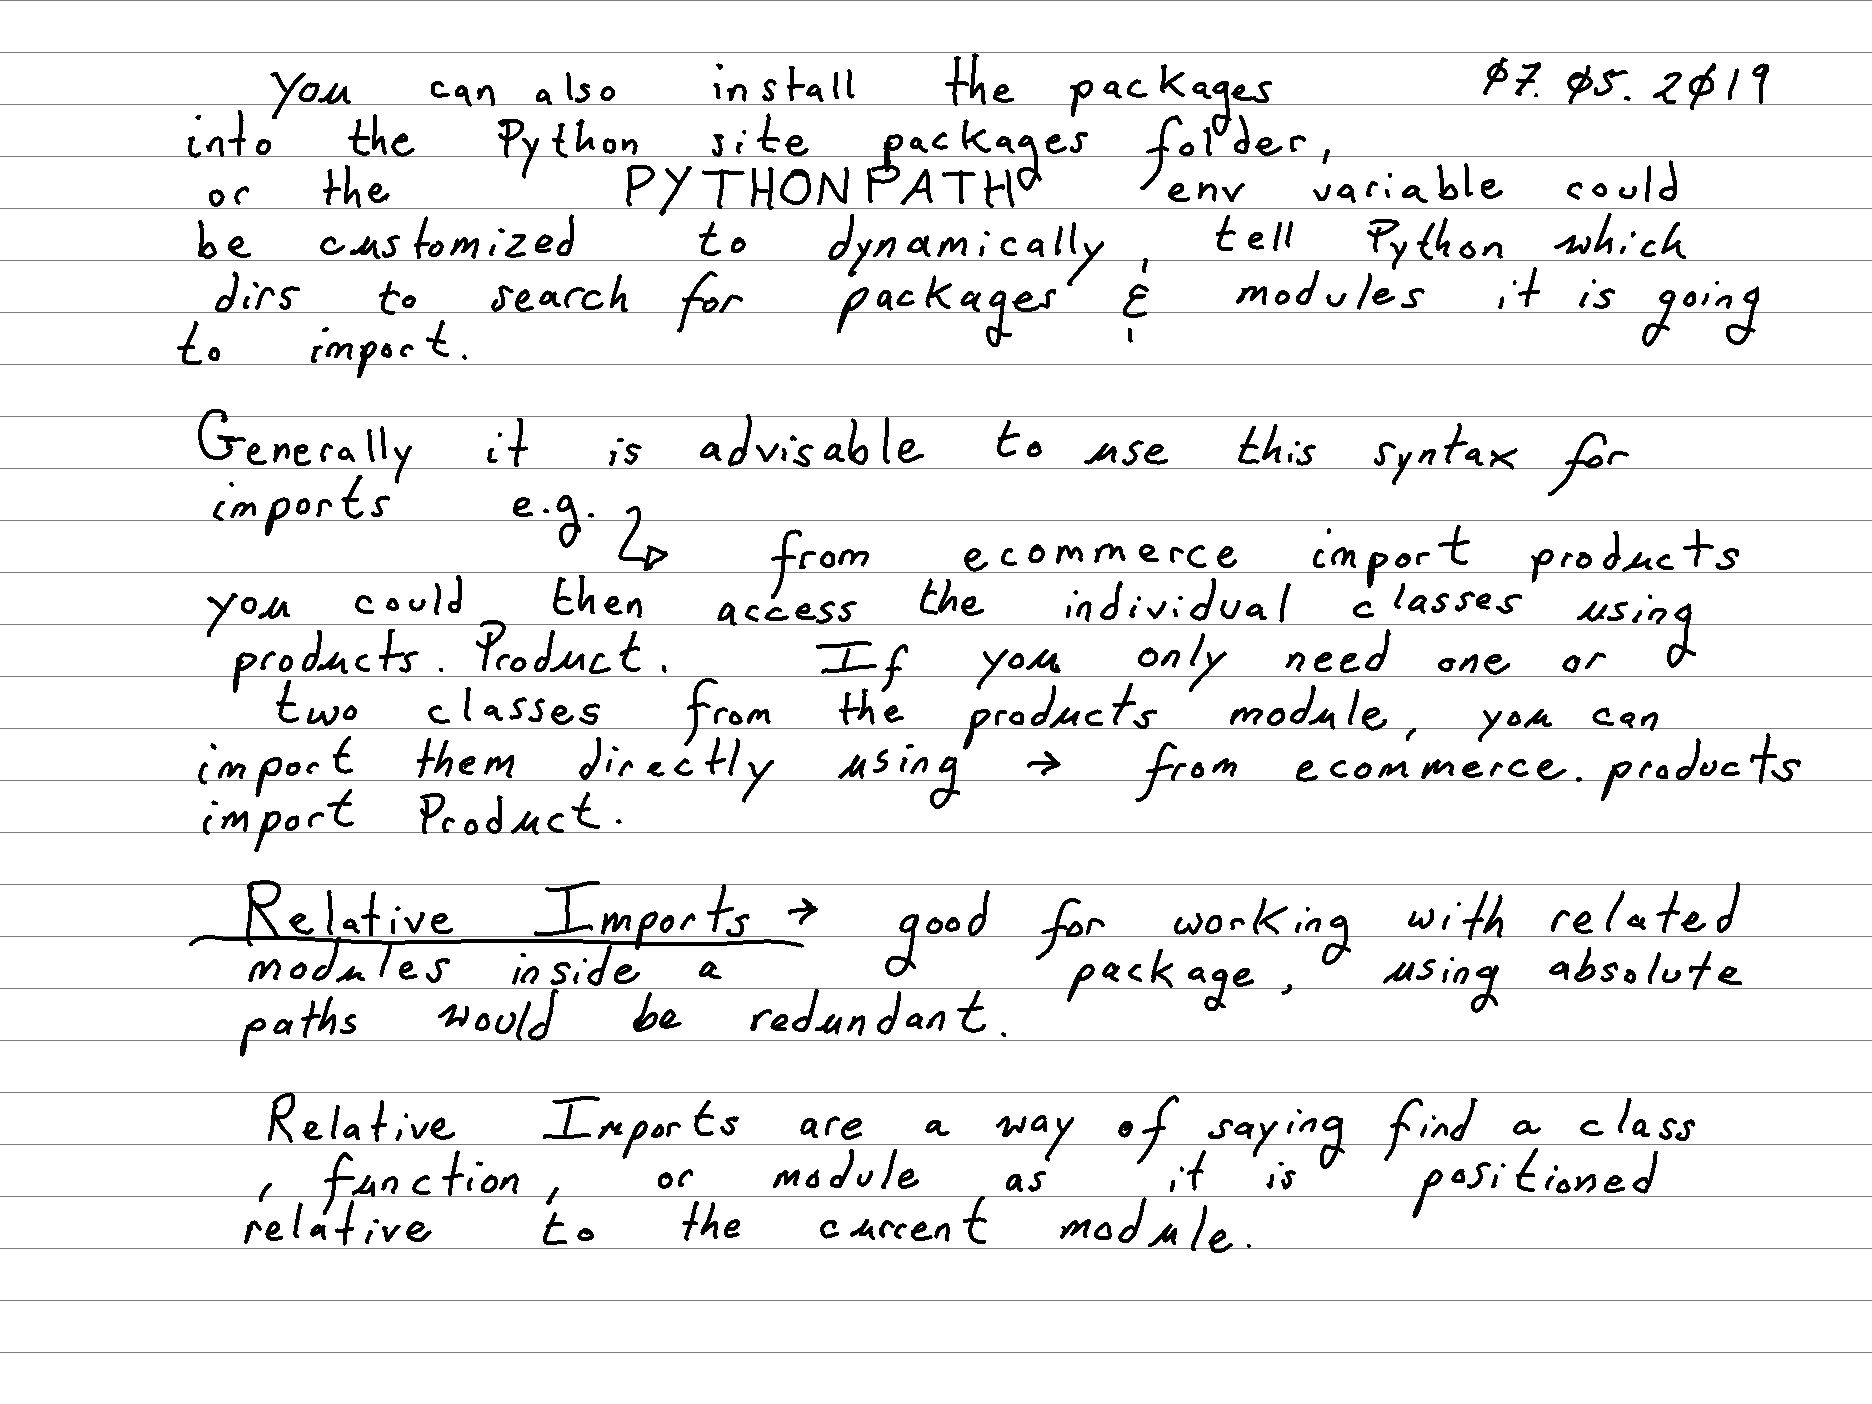 You can also install the packages 07.05.2019
into the Python site packages folder,
or the PYTHONPATH env variable could
be customized to dynamically tell Python which
dirs to search for packages & modules it is going
to import.
Generally it is advisable to use this syntax for
imports e.g. ↳
from ecommerce import products
you could then access the individual classes using
products. Product. If you only need one or
two classes from the products module, you can
import them directly using → from ecommerce. products
import Product.
Relative Imports → good for working with related
modules inside a package, using absolute
paths would be redundant.
Relative Imports are a way of saying find a class
, function, or module as it is positioned
relative to the current module.